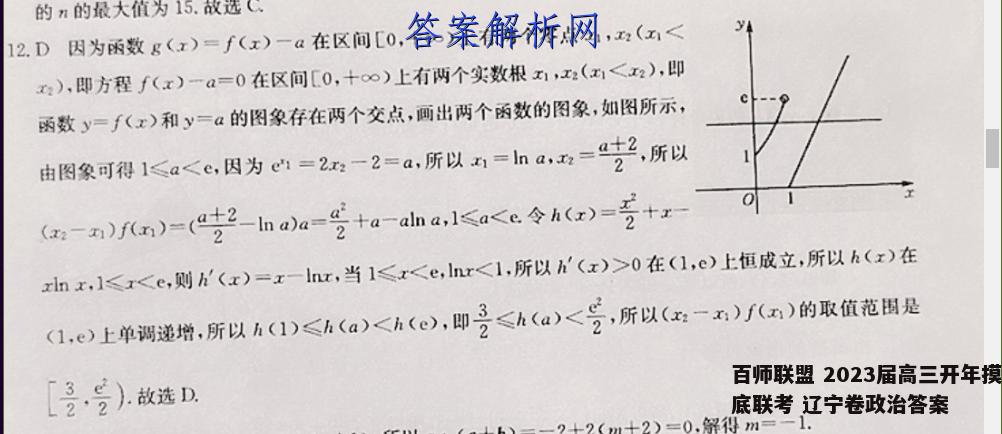 的 n 的最大值为 15. 故选 C.
答案解析网
12. D 因为函数 g(x)=f(x)-a 在区间[0, ,x₂(x₁<
x₂),即方程 f(x)-a=0 在区间[0,+∞)上有两个实数根 x₁,x₂(x₁<x₂),即
函数 y=f(x)和 y=a 的图象存在两个交点,画出两个函数的图象,如图所示,
由图象可得 1≤a<e,因为 e^{x₁}=2x₂-2=a,所以 x₁=ln a,x₂=\frac{a+2}{2},所以
(x₂-x₁)f(x₁)=(\frac{a+2}{2}-ln a)a=\frac{a²}{2}+a-aln a,1≤a<e.令 h(x)=\frac{x²}{2}+x-
xln x,1≤x<e,则 h′(x)=x-lnx,当 1≤x<e,lnx<1,所以 h′(x)>0 在(1,e)上恒成立,所以 h(x)在
(1,e)上单调递增,所以 h(1)≤h(a)<h(e),即\frac{3}{2}≤h(a)<\frac{e²}{2},所以(x₂-x₁)f(x₁)的取值范围是
[\frac{3}{2},\frac{e²}{2}).故选 D.
y
e
1
O 1 x
百师联盟 2023届高三开年摸
底联考 辽宁卷政治答案
=-2+2(m+2)=0,解得 m=-1.